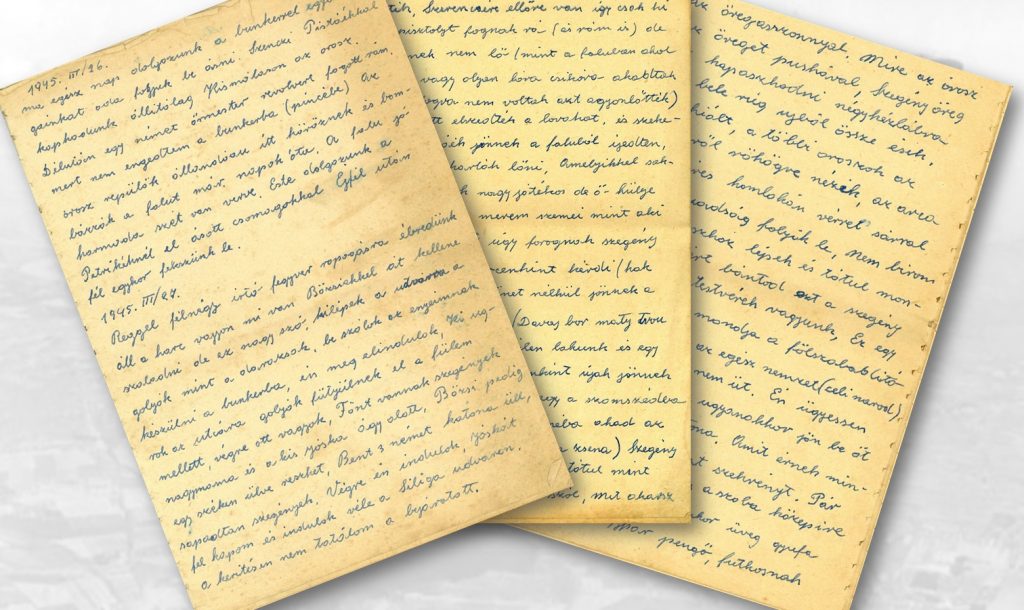 1945. III/26.
ma egész nap dolgozunk a bunkerrel egy
gainkat oda fogjuk be ásni. Szenczi Pistáékkal
kaphatunk állítólag Kismóláson az orosz.
Délután egy német őrmester revolvert fogott rám.
mert nem engedtem a bunkerba (pincébe) Az
orosz repülők állandóan itt köröznek és bom-
bázzák a falut már napok óta. A falu jó
harmada szét van verve. Este dolgozunk a
Petrikéknél el ásott csomagokkal Éjfél után
fél egykor fekszünk le.
1945. III/27.
Reggel félnégy irtó fegyver ropogásra ébredünk
áll a harc vagyon mi van Börcsiékkel át kellene
szaladni de ez nagy szó, kilépek a udvarra a
golyók mint a darazsak, be szólok az enyéimnek
készülni a bunkerba, én meg elindulok, Ki ug-
rok az utcára golyók fütyülnek el a fülem
mellett, végre ott vagyok, Fönt vannak szegények
nagymama és a kis Jóska ágy alatt, Börzsi pedig
egy széken ülve reszket, Bent 3 német katona ül,
sapadtan szegények. Végre én indulok, Jóskát
fel kapom és indulok véle a Siliga udvaron,
a kerítésen nem találom a bejáratott.
k, Szerencsére ellőre van így csak ki
pisztolyt fognak rá (és rám is) de
nek nem lő (mint a faluban ahol
vagy olyan lóra csikóra akadtak
fogva nem voltak azt agyonlőtték)
tt elvezették a lovakat, és szeke-
jönnek a faluból ijedten,
akarták lőni, Amelyikkel sak-
k nagy játékos de ő hülye
merem szemei mint aki
úgy forognak szegény
percenkint kérdi (hak
német nélkül jönnek a
(Davaj bor maty tvou
len lakunk és egy
nkint újak jönnek
gy a szomszédba
ába ahad az
zsena) Szegény
tótul mint
mit akarsz
az öregasszonnyal. Mire az orosz
öreget puskával, Szegény öreg
kapaszkodni négykézlábra
bele rúg ujból össze esik,
kiált, a többi oroszok az
ről röhögve nézek, az arca
res homlokán vérrel sárral
uadság folyik le, Nem birom
szhoz lépek és tótul mon-
rt bántod ezt a szegény
testvérek vagyunk, Ez egy
mondja a fölszabadító
az egész nemzet (celi narod),
nem üt. Én ügyessen
ugyanakkor jön be öt
na. Amit érnek min-
t szekrényt. Pár
a szoba közepire
kor üveg gyufa
Már pengő, futkosnak